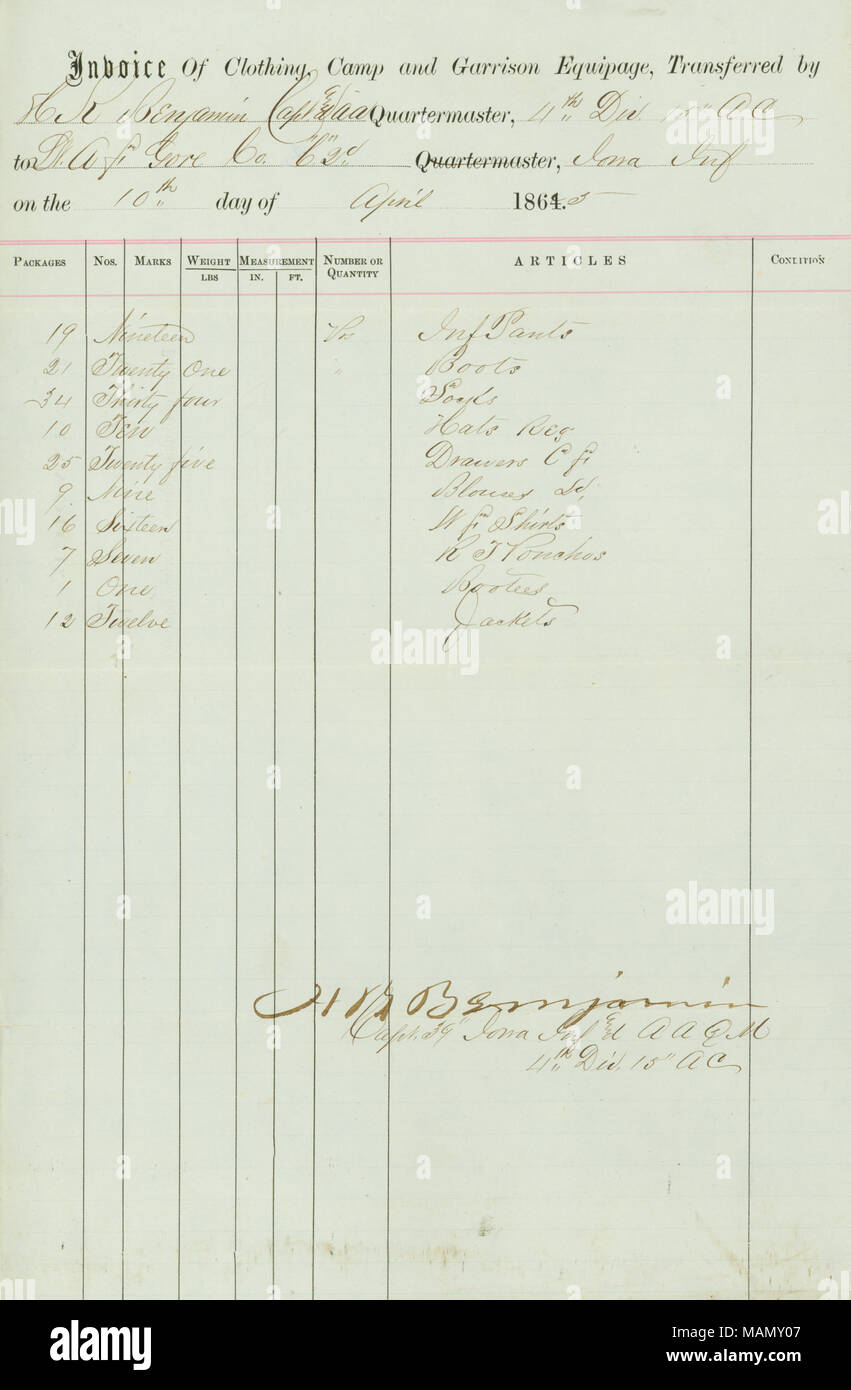 Invoice Of Clothing, Camp and Garrison Equipage, Transferred by
H K Benjamin Capt & AA Quartermaster, 4th Div 15" A C
to Lt. A Gore Co. "C" 2d Quartermaster, Iowa Inf
on the 10th day of April 1864.5
PACKAGES NOS. MARKS WEIGHT LBS MEASUREMENT IN. FT. NUMBER OR QUANTITY ARTICLES CONDITION
19 Nineteen Prs Inf Pants
21 Twenty One " Boots
34 Thirty four Socks
10 Ten Hats Reg
25 Twenty five Drawers C F
9 Nine Blouses Ld,
16 Sixteen W F Shirts
7 Seven R T Ponchos
1 One Bootees
12 Twelve Jackets
H K Benjamin
Capt. 39" Iowa Inf & A A Q M
4th Div. 15" A C
a alamy
alamy
Image ID: MAMY07
www.alamy.com